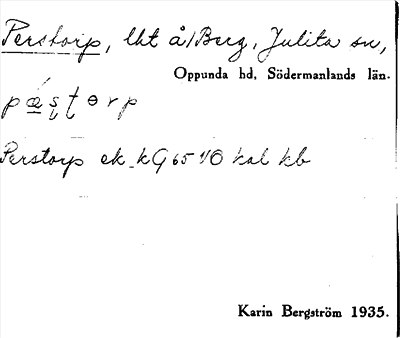 Perstorp, lht å/Berg, Julita sn,
Oppunda hd, Södermanlands län.
pæstɵrp
Perstorp ek. kG 65 1/0 kal kb
Karin Bergström 1935.